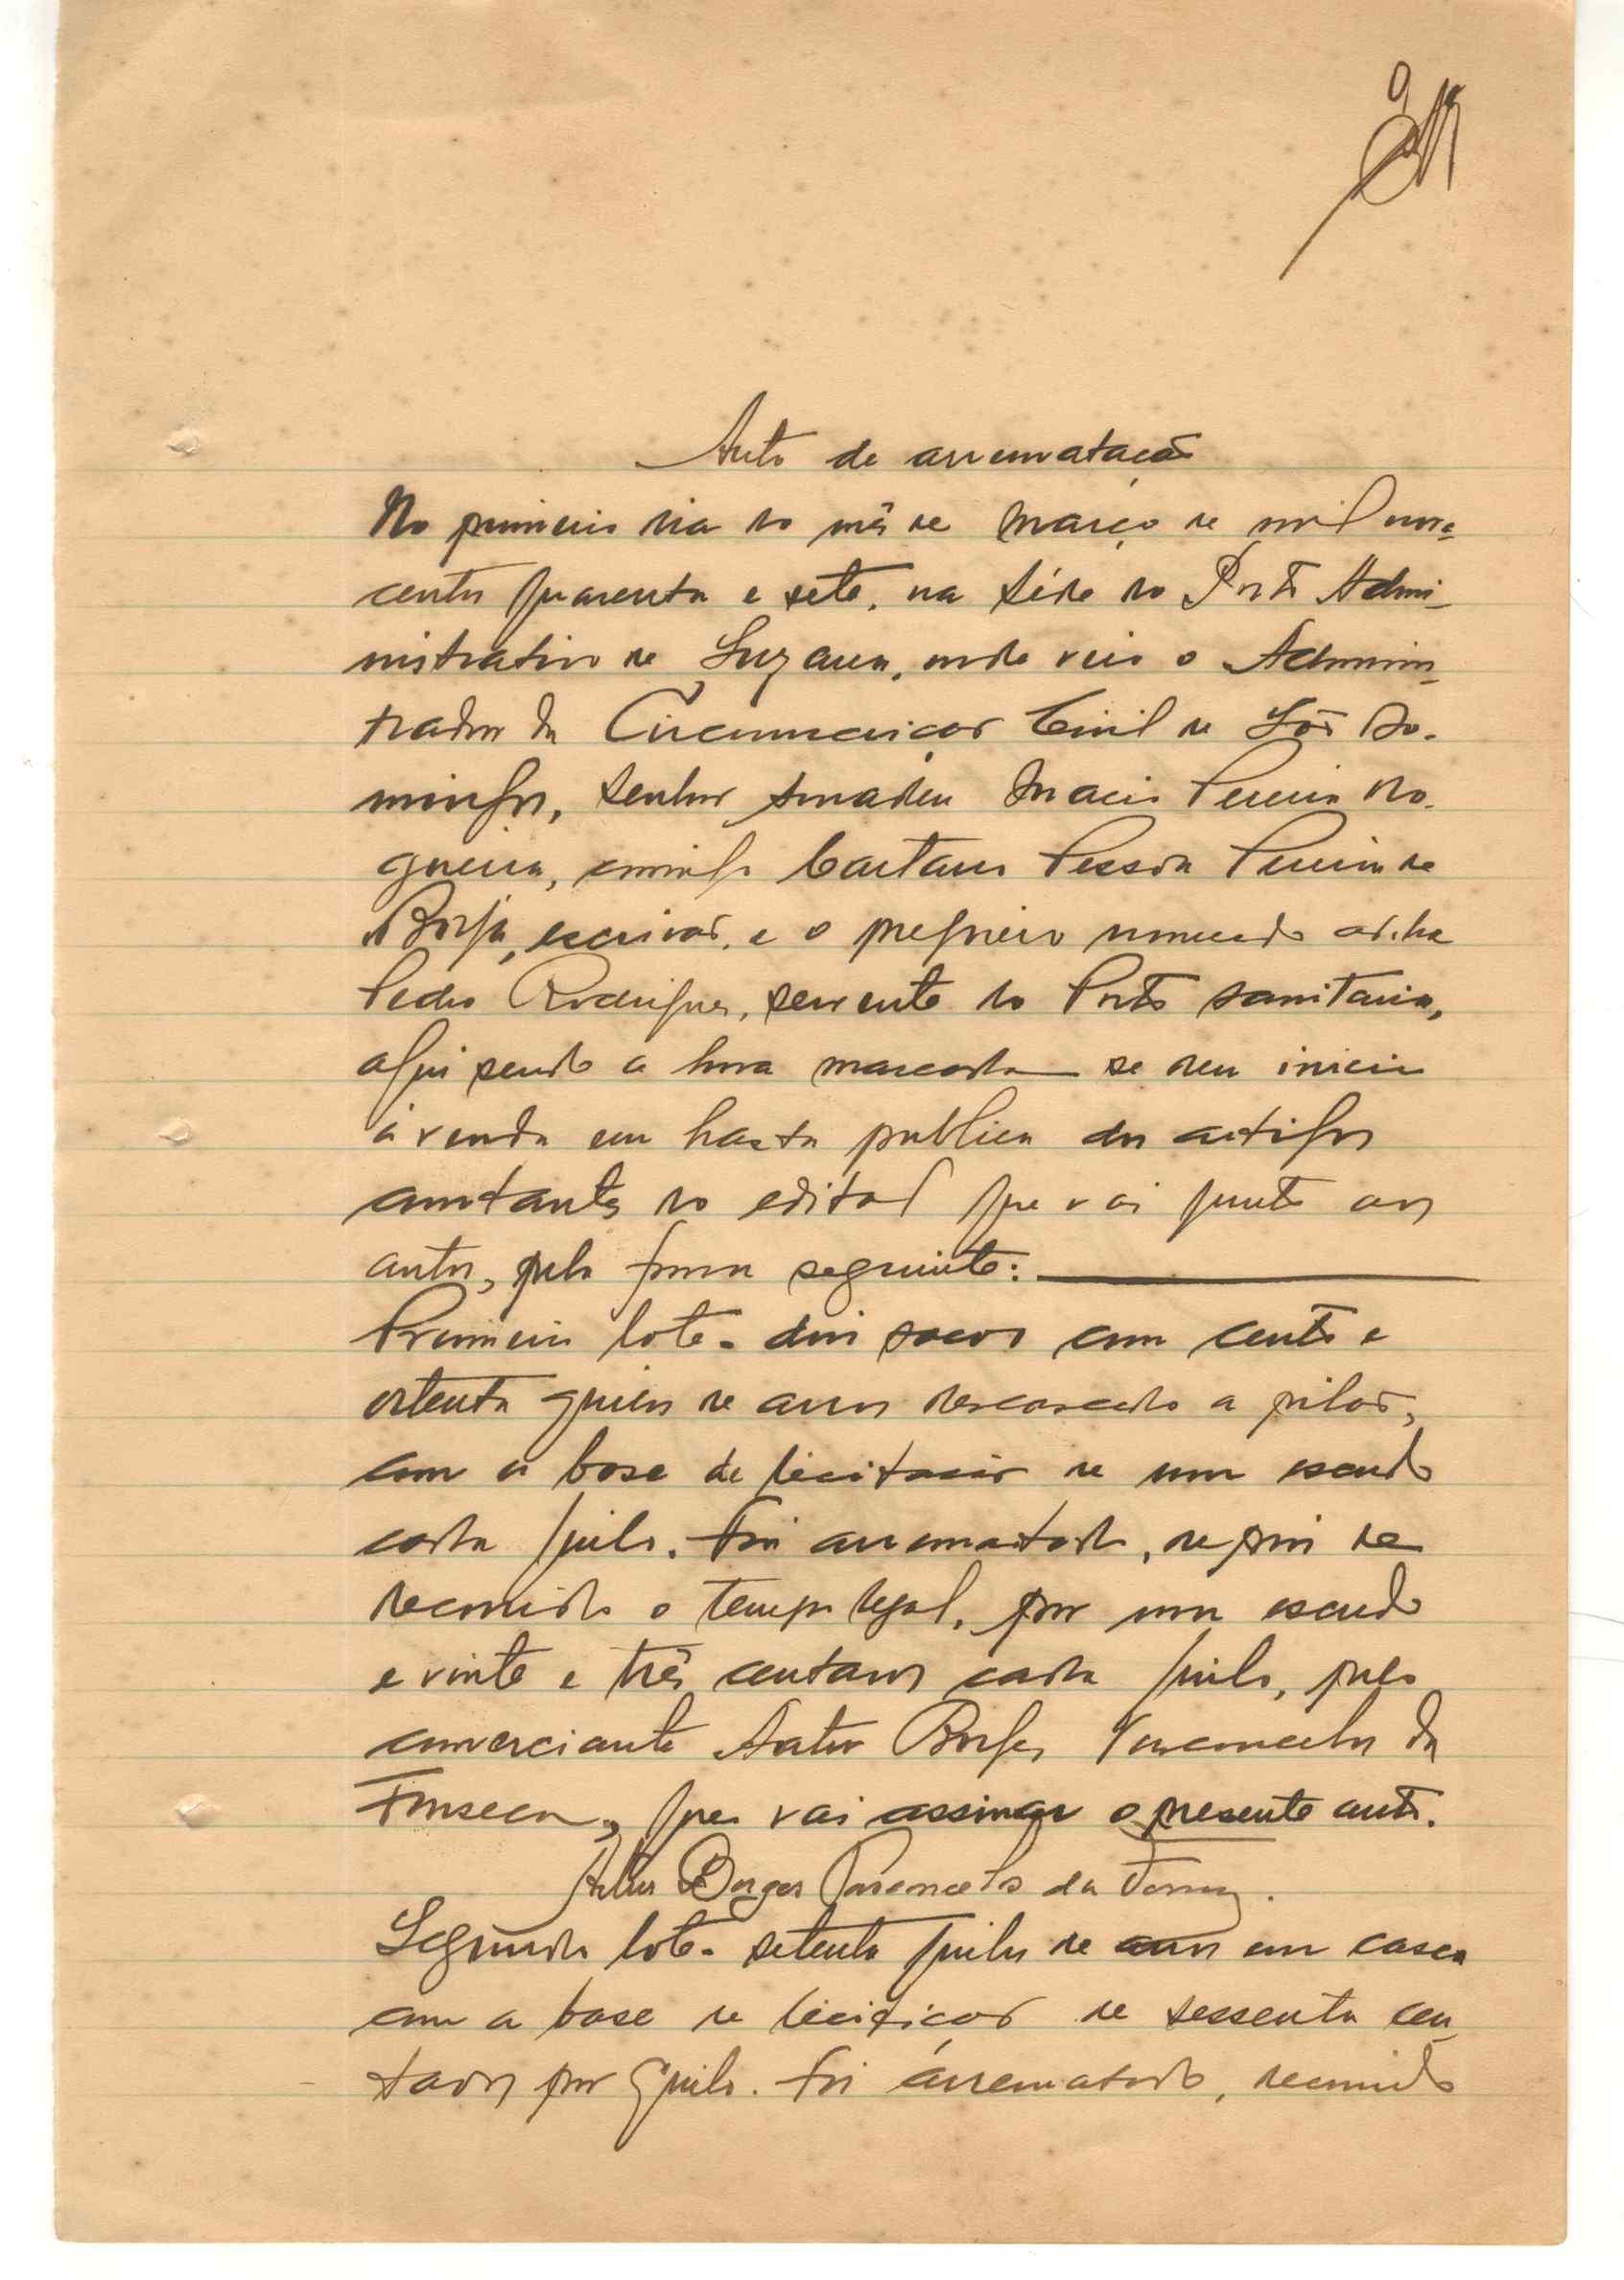 Auto de arrematação
No primeiro dia do mês de Março de mil nove-
centos quarenta e sete, na séde do Posto Admi-
nistrativo de Suzana, onde veio o Adminis-
trador da Circunscrição Civil de São Do-
mingos, senhor Amadeu Inacio Pereira No-
gueira, comigo Caetano Pessoa Pereira de
Borja, escrivão, e o pregoeiro nomeado
Pedro Rodrigues, servente do Posto sanitario,
aqui sendo a hora marcada se deu inicio
á venda em hasta publica dos artigos
constantes do edital que vai junto aos
autos, pela forma seguinte:
Primeiro lote - dois sacos com cento e
oitenta quilos de arroz descascado a pilão,
com a base de licitação de um escudo
cada quilo. Foi arrematado, depois de
decorrido o tempo legal, por um escudo
e vinte e três centavos cada quilo, pelo
comerciante Artur Borges Vasconcelos da
Fonseca, que vai assinar o presente auto.
Artur Borges Vasconcelos da Fonseca.
Segundo lote - setenta quilos de arroz em casca
com a base de licitação de sessenta cen-
tavos por quilo. Foi arrematado, decorrido